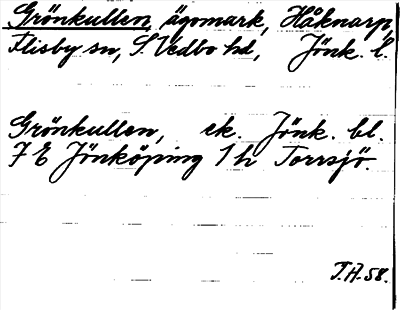 Grönkullen, ägomark, Håknarp,
Flisby sn, S. Vedbo hd, Jönk. l.
Grönkullen, ek. Jönk. bl.
7 E Jönköping 1 h Torrsjö.
T.A. 58.